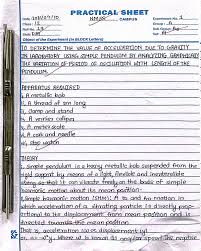 PRACTICAL SHEET
CAMPUS
Experiment No. 1
Date :
Group : A
Class : 12
Sub :
Roll No. :
Set :
Object of the Experiment (In BLOCK Letters)
TO DETERMINE THE VALUE OF ACCELERATION DUE TO GRAVITY
IN LABORATORY USING SIMPLE PENDULUM BY ANALYZING GRAPHICALLY
THE VARIATION OF PERIOD OF OSCILLATION WITH LENGTH OF THE
PENDULUM.
APPARATUS REQUIRED
a. A metallic bob
b. A thread of 2m long
c. A clamp and stand
d. A vernier calliper
e. A meter scale
f. A cork and needle
g. stop watch
THEORY
Simple pendulum is a heavy metallic bob suspended from the
rigid support by means of a light, flexible and inextensible
string so that it can vibrate freely on the basis of simple
harmonic motion about its mean position.
Simple harmonic motion (SHM) is a to and fro motion in
which acceleration of a vibrating particle is directly prop-
ortional to the displacement from mean position and is directed
towards the mean position.
That is, acceleration ∝ (-displacement)